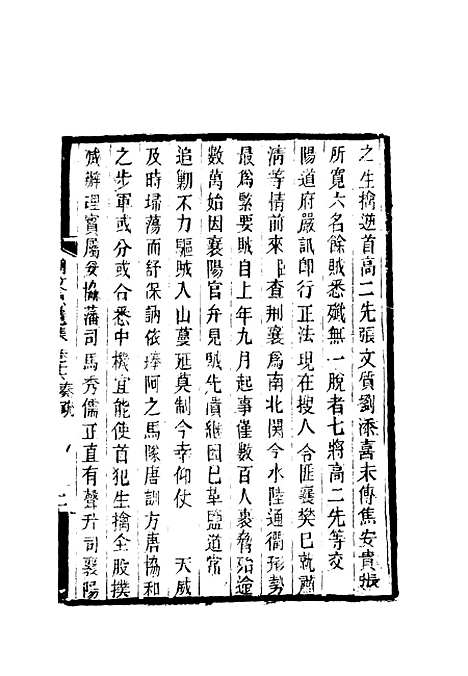 之生擒逆首高二先張文質劉添喜未傳焦安貴張
所寬六名餘賊悉殲無一脫者七將高二先等交
陽道府嚴訊即行正法現在搜入合匪襄樊已就肅
清等情前來臣查荊襄為南北關今水陸通衢形勢
最為緊要賊自上年九月起事僅數百人裹脅殆途
數萬始因襄陽官弁見賊先潰繼因已革鹽道常
追勦不力驅賊入山蔓延莫制今幸仰仗 天威
及時掃蕩而舒保訥依擡阿之馬隊唐訓方唐協和
之步軍或分或合悉中機宜能使首犯生擒全股撲
滅辦理實屬妥協藩司馬秀儒正直有聲升司襄陽
奏疏